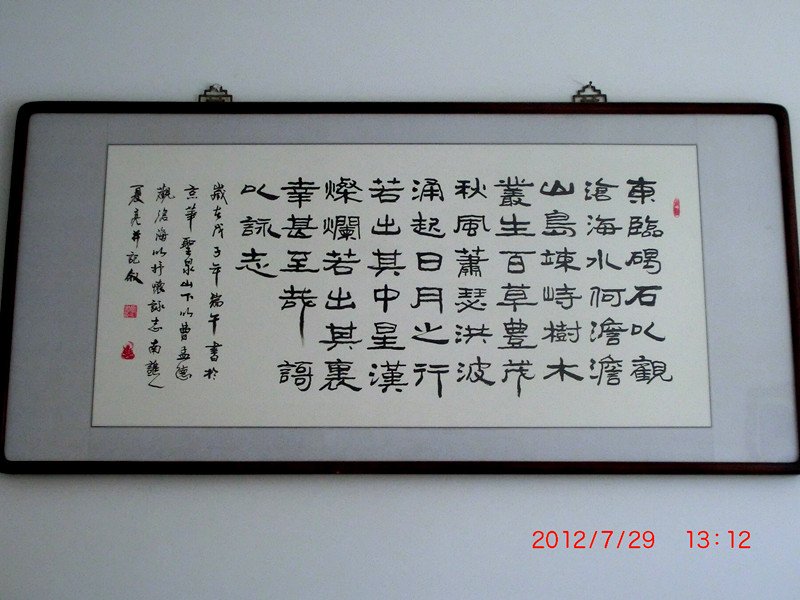 東臨碣石以觀
滄海水何澹澹
山島竦峙樹木
叢生百草豊茂
秋風蕭瑟洪波
涌起日月之行
若出其中星漢
燦爛若出其裏
幸甚至哉謌
以詠志
歲在戊子年端午書於
京華聖泉山下以曹孟德
觀滄海以抒懷詠志南譙人
夏亮并記叙
2012/7/29 13:12